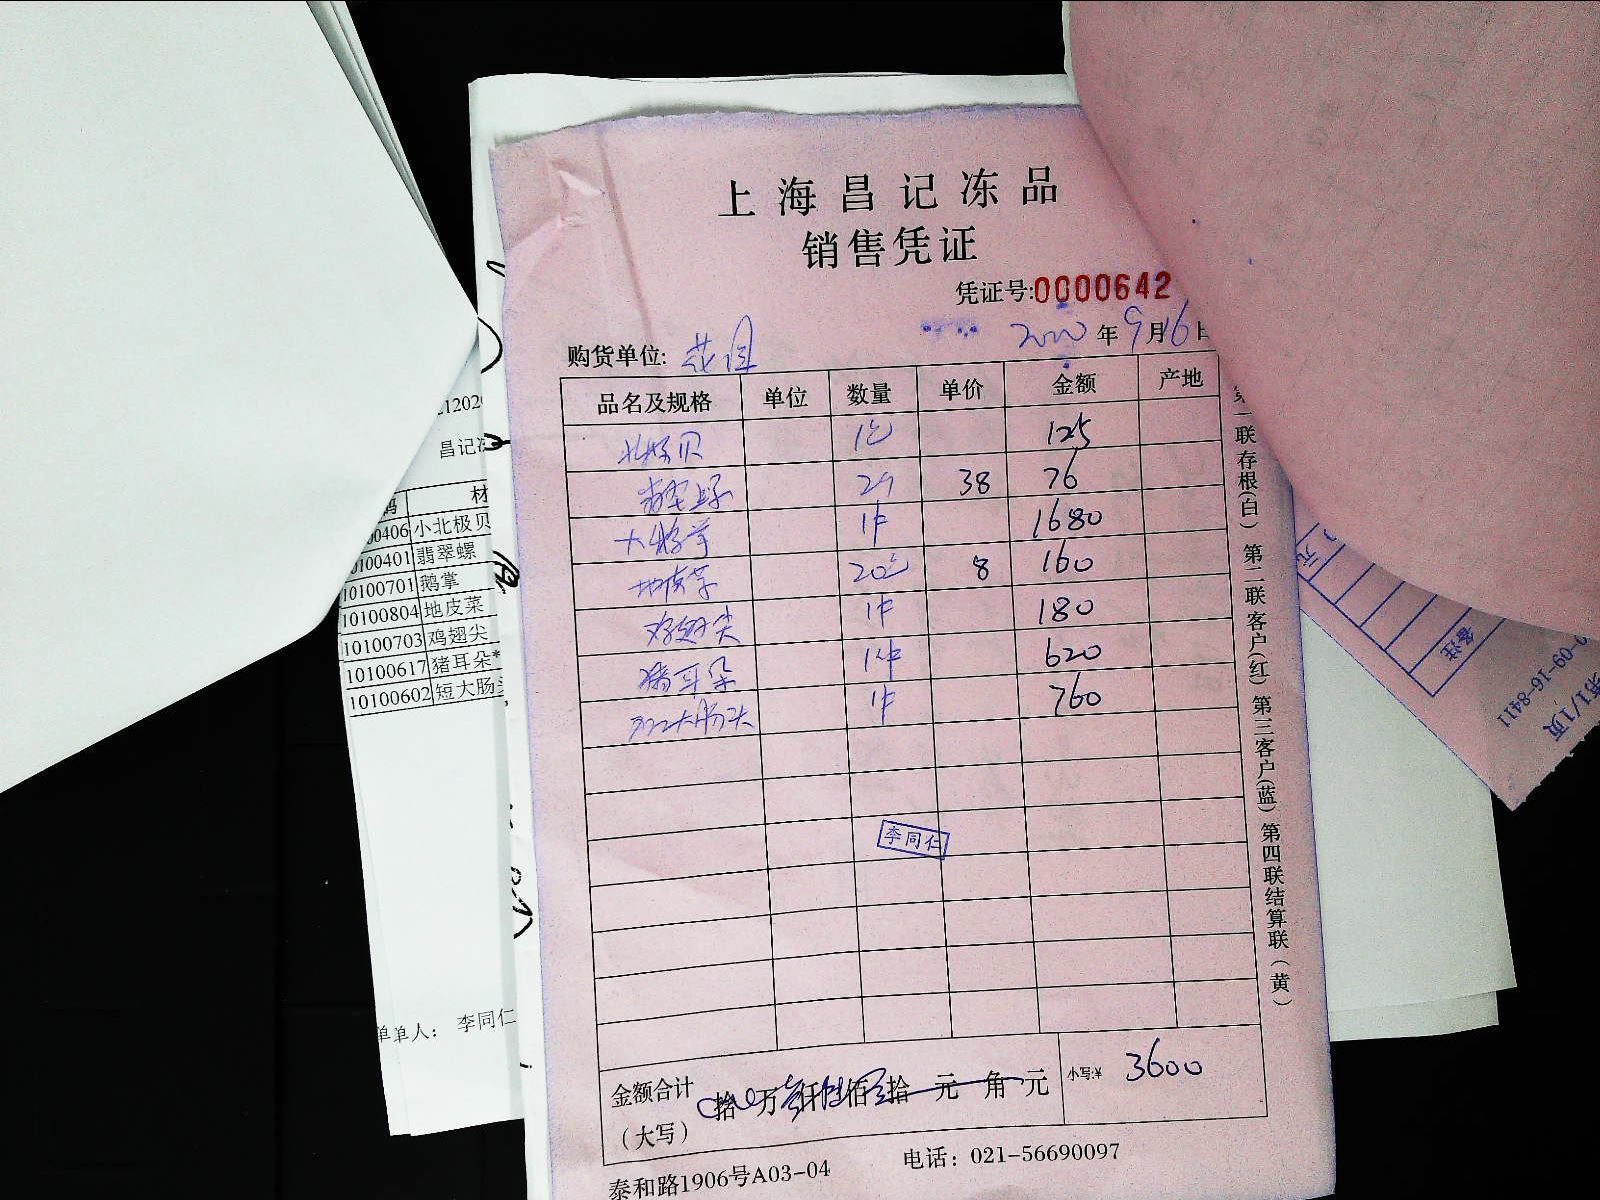 上海昌记冻品
销售凭证
凭证号:0000642
2020年9月16日
购货单位:
品名及规格 单位 数量 单价 金额 产地
北极贝 1包 125
38 76
1件 1680
地皮菜 20包 8 160
鸡翅尖 1件 180
猪耳朵 1件 620
大肠头 1件 760
李同仁
金额合计(大写) 拾 万 仟 佰 拾 元 角 元 小写:¥ 3600
泰和路1906号A03-04 电话：021-56690097
第一联存根(白) 第二联客户(红) 第三客户(蓝) 第四联结算联(黄)
昌记
码 材
00406 小北极贝
10100401 翡翠螺
10100701 鹅掌
10100804 地皮菜
10100703 鸡翅尖
10100617 猪耳朵*
10100602 短大肠
单单人： 李同仁
元
备注
0-09-16-8411
第1/1页